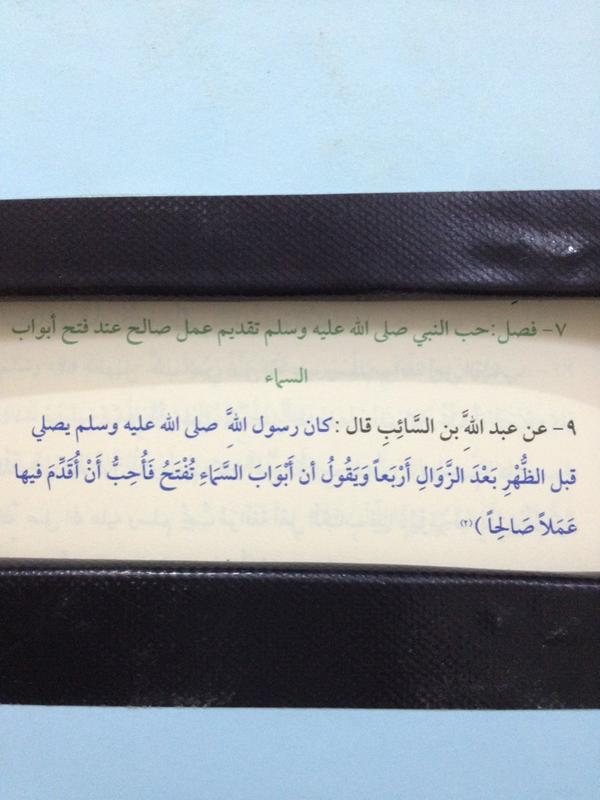 ٧- فصل: حب النبي صلى الله عليه وسلم تقديم عمل صالح عند فتح أبواب
السماء
٩- عن عبد اللهَّ بن السَّائِبِ قال : كان رسول اللهَّ صلى الله عليه وسلم يصلي
قبل الظُّهْرِ بَعْدَ الزَّوَالِ أَرْبَعاً وَيَقُولُ أن أَبْوَابَ السَّمَاءِ تُفْتَحُ فَأُحِبُّ أَنْ أُقَدِّمَ فيها
عَمَلاً صَالِحاً )(٢)